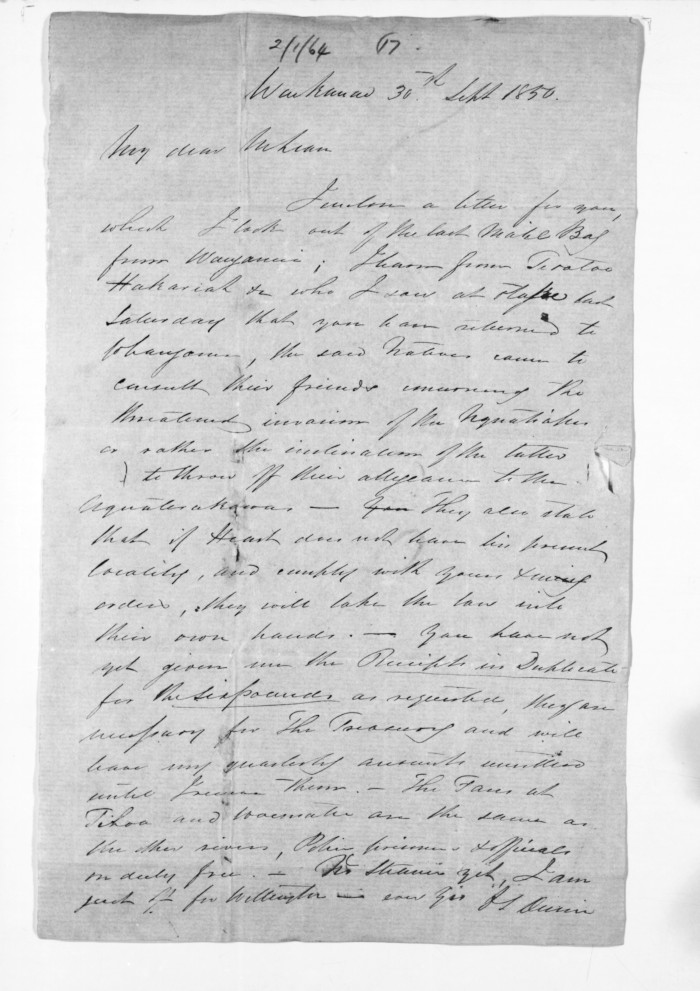 2/1/64 17.
Waikanae 30th Sept 1850.
My dear McLean
I enclose a letter for you,
which I took out of the last Mail Bag
from Wanganui; I learn from
Hakaraiah &c who I saw at Otaki last
Saturday that you have returned to
Wanganui, the said Natives came to
consult their friends concerning the
threatened invasion of the
or rather the inclination of the latter
to throw off their allegiance to the
— They also state
that if Heart does not leave his present
locality, and comply with yours &
orders, they will take the law into
their own hands. — You have not
yet given me the Receipts in Duplicate
for the six pounds as requested, they are
necessary for The Treasury and will
leave my quarterly accounts unsettled
until I receive them. — The Fares at
and are the same as
the other rivers, Police, prisoners & officials
on duty free. — No Steamer yet, I am
just off for Wellington —